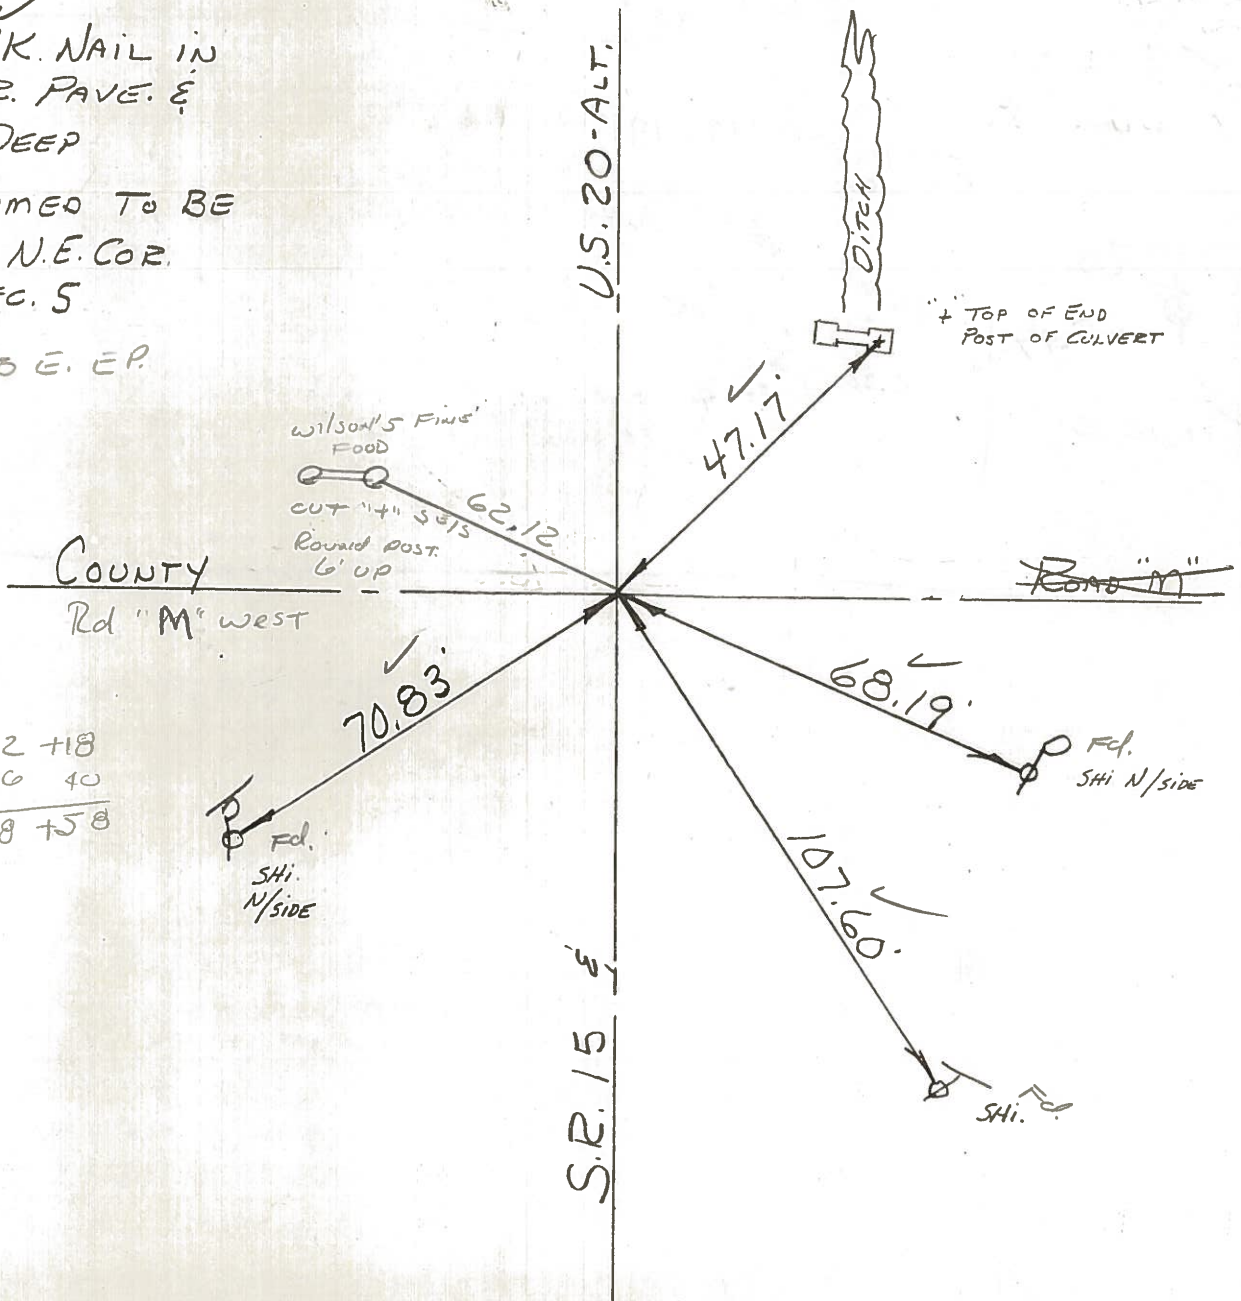 K. NAIL IN
R. PAVE. &
DEEP
MED TO BE
N.E. COR.
EC. 5
E. EP.
U.S. 20-ALT.
DITCH
"+" TOP OF END
POST OF CULVERT
47.17'
WILSON'S FINE'
FOOD
CUT "+" SE/S
ROUND POST.
6' UP
62.12
COUNTY
ROAD "M"
Rd "M" west
70.83'
68.19'
Fd.
SHI N/SIDE
2 +18
6 40
8 +58
Fd.
SHI.
N/SIDE
107.60'
S.R. 15 &
SHI. Fd.